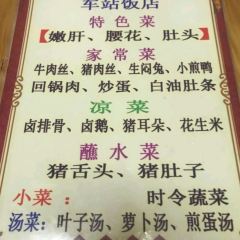 车站饭店
特色菜
【嫩肝、腰花、肚头】
家常菜
牛肉丝、猪肉丝、生闷兔、小煎鸭
回锅肉、炒蛋、白油肚条
凉菜
卤排骨、卤鹅、猪耳朵、花生米
蘸水菜
猪舌头、猪肚子
小菜： 时令蔬菜
汤菜：叶子汤、萝卜汤、煎蛋汤